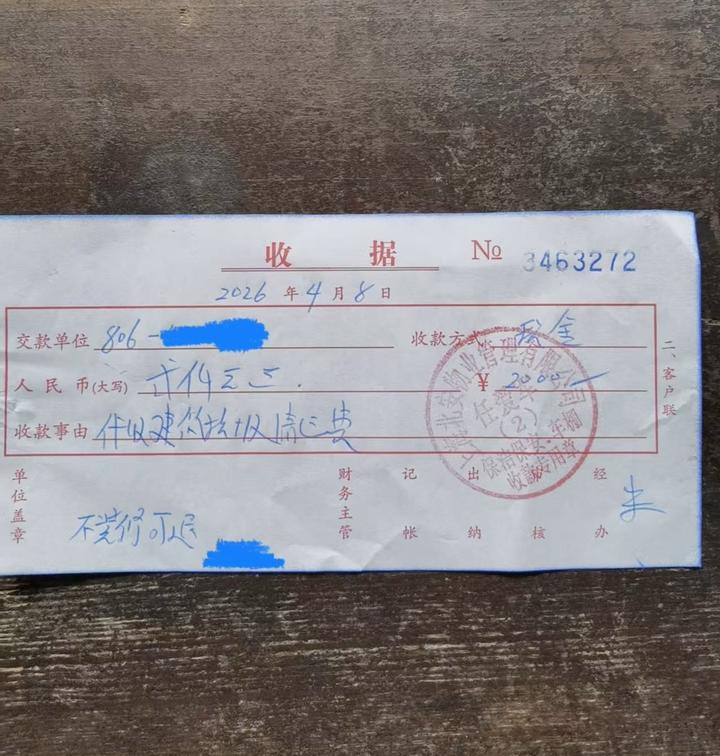 收 据 № 3463272
2026 年 4 月 8 日
交款单位 806- 收款方式 现金
人民币(大写) 贰仟元正. ¥ 2000/—
收款事由 代收建筑垃圾清运费
二、客户联
北安物业管理有限公司
(2)
保洁保安·车棚
收款专用章
单位盖章 财务主管 记帐 出纳 核 经办 朱
不装修可退